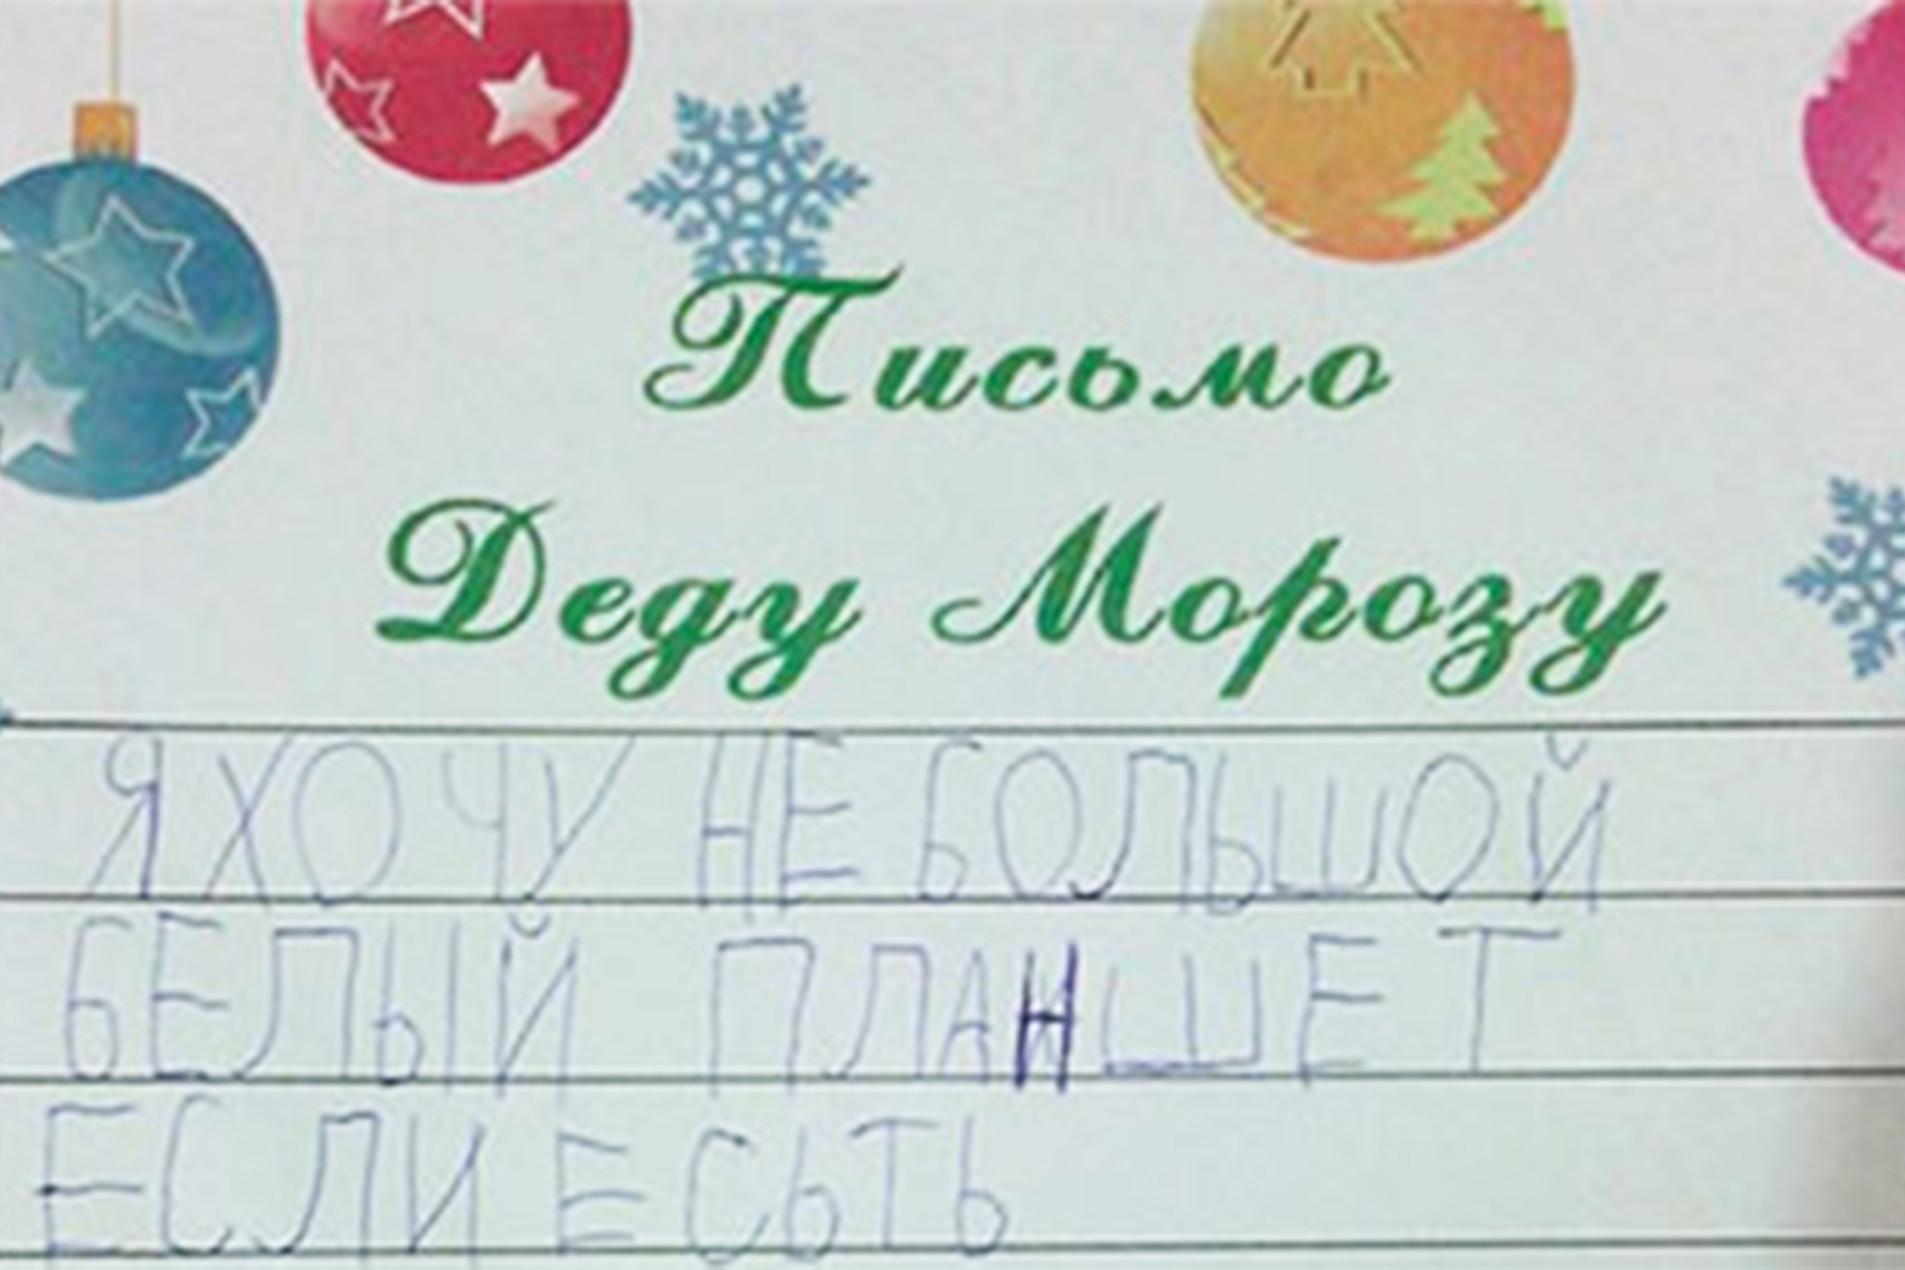 Письмо
Деду Морозу
Я ХОЧУ НЕ БОЛЬШОЙ
БЕЛЫЙ ПЛАНШЕТ
ЕСЛИ ЕСЬТЬ